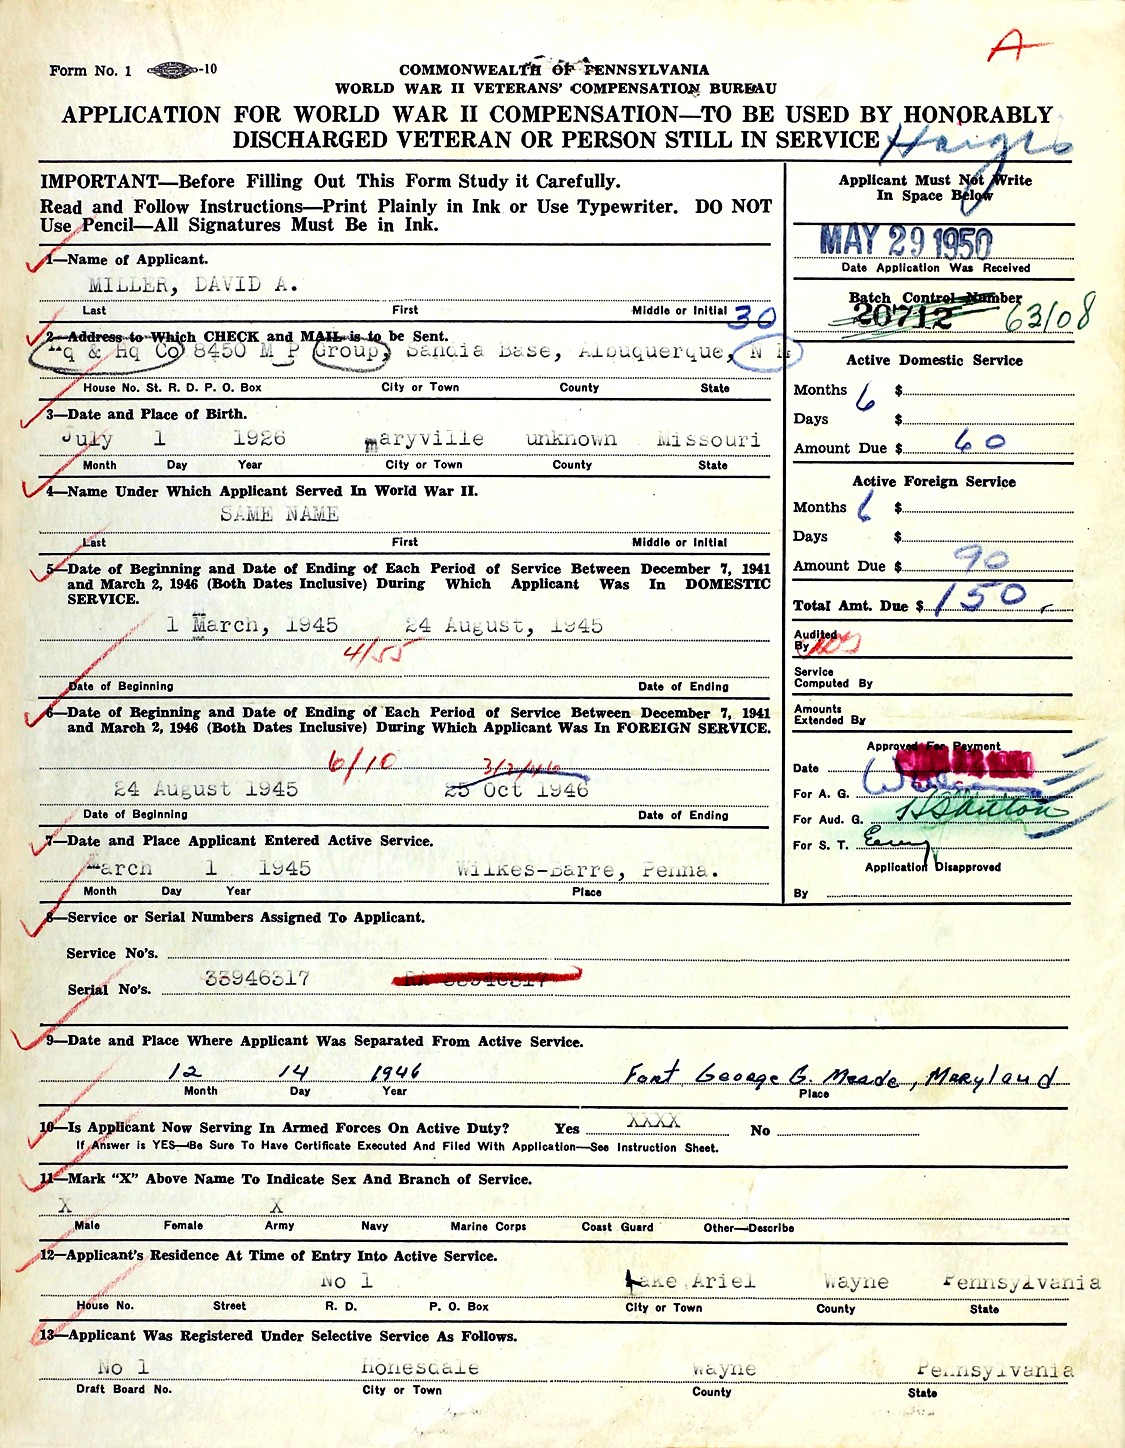 A
Form No. 1 -10
COMMONWEALTH OF PENNSYLVANIA
WORLD WAR II VETERANS' COMPENSATION BUREAU
APPLICATION FOR WORLD WAR II COMPENSATION—TO BE USED BY HONORABLY
DISCHARGED VETERAN OR PERSON STILL IN SERVICE
IMPORTANT—Before Filling Out This Form Study it Carefully.
Read and Follow Instructions—Print Plainly in Ink or Use Typewriter. DO NOT
Use Pencil—All Signatures Must Be in Ink.
Applicant Must Not Write
In Space Below
MAY 29 1950
Date Application Was Received
Batch Control Number
20712 63108
1—Name of Applicant.
MILLER, DAVID A.
Last First Middle or Initial
30
2—Address to Which CHECK and MAIL is to be Sent.
Hq & Hq Co 8450 M P Group, Sandia Base, Albuquerque, N M
House No. St. R. D. P. O. Box City or Town County State
3—Date and Place of Birth.
July 1 1926 maryville unknown Missouri
Month Day Year City or Town County State
4—Name Under Which Applicant Served In World War II.
SAME NAME
Last First Middle or Initial
5—Date of Beginning and Date of Ending of Each Period of Service Between December 7, 1941
and March 2, 1946 (Both Dates Inclusive) During Which Applicant Was In DOMESTIC
SERVICE.
1 March, 1945 24 August, 1945
Date of Beginning Date of Ending
6—Date of Beginning and Date of Ending of Each Period of Service Between December 7, 1941
and March 2, 1946 (Both Dates Inclusive) During Which Applicant Was In FOREIGN SERVICE.
6/10
24 August 1945 25 Oct 1946
Date of Beginning Date of Ending
7—Date and Place Applicant Entered Active Service.
March 1 1945 Wilkes-Barre, Penna.
Month Day Year Place
Active Domestic Service
Months 6 $
Days $
Amount Due $ 60
Active Foreign Service
Months 6 $
Days $
Amount Due $ 90
Total Amt. Due $ 150
Audited
By
Service
Computed By
Amounts
Extended By
Approved For Payment
Date
For A. G.
For Aud. G.
For S. T.
Application Disapproved
By
8—Service or Serial Numbers Assigned To Applicant.
Service No's.
Serial No's. 33946317 RA 33946317
9—Date and Place Where Applicant Was Separated From Active Service.
12 14 1946 Fort George G. Meade, Maryland
Month Day Year Place
10—Is Applicant Now Serving In Armed Forces On Active Duty? Yes XXXX No
If Answer is YES—Be Sure To Have Certificate Executed And Filed With Application—See Instruction Sheet.
11—Mark "X" Above Name To Indicate Sex And Branch of Service.
X X
Male Female Army Navy Marine Corps Coast Guard Other—Describe
12—Applicant's Residence At Time of Entry Into Active Service.
No 1 Lake Ariel Wayne Pennsylvania
House No. Street R. D. P. O. Box City or Town County State
13—Applicant Was Registered Under Selective Service As Follows.
No 1 Honesdale Wayne Pennsylvania
Draft Board No. City or Town County State